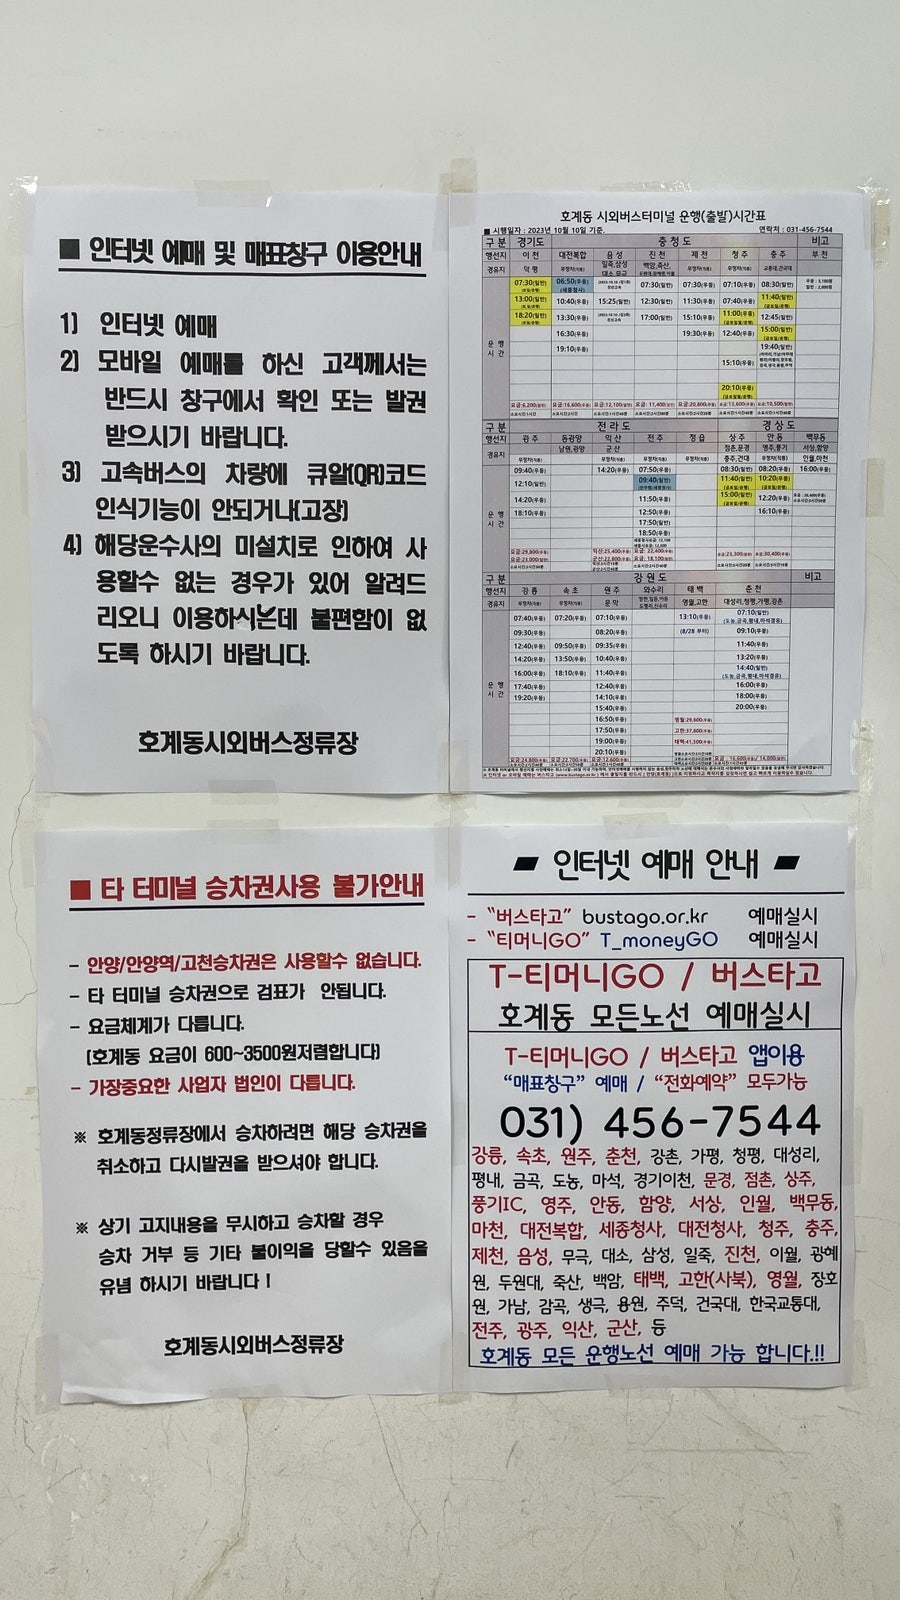 ■ 인터넷 예매 및 매표창구 이용안내
1) 인터넷 예매
2) 모바일 예매를 하신 고객께서는
반드시 창구에서 확인 또는 발권
받으시기 바랍니다.
3) 고속버스의 차량에 큐알(QR)코드
인식기능이 안되거나(고장)
4) 해당운수사의 미설치로 인하여 사
용할수 없는 경우가 있어 알려드
리오니 이용하시는데 불편함이 없
도록 하시기 바랍니다.
호계동시외버스정류장
호계동 시외버스터미널 운행(출발)시간표
■ 시행일자 : 2023년 10월 10일 기준. 연락처 : 031-456-7544
구분 경기도 충청도 비고
행선지 이천 대전복합 음성 진천 제천 청주 충주 부천
경유지 덕평 무정차(직통) 일죽,삼성 백암,죽산, 무정차(직통) 무정차(직통) 교통대,건국대
대소 무극
07:30(일반) 06:50(우등) 07:30(일반) 07:30(우등) 07:10(우등) 08:30(일반)
(세종청사)
13:00(일반) 10:40(우등) 15:25(일반) 12:30(일반) 11:30(우등) 07:40(우등) 11:40(우등)
18:20(일반) 13:30(우등) 17:00(일반) 15:10(우등) 11:00(우등) 12:45(일반)
운행 16:30(우등) 19:30(우등) 12:40(우등) 15:00(우등)
시간 19:10(우등) 19:40(일반)
15:10(우등)
20:10(우등)
요금:6,200(일반) 요금:16,600(우등) 요금:12,100(일반) 요금:11,400(일반) 요금:20,800(우등) 요금:13,600(우등) 요금:10,500(일반)
구분 전라도 경상도
행선지 광주 동광양 익산 전주 정읍 상주 안동 백무동
경유지 무정차(직통) 남원,광양 군산 무정차(직통) 무정차(직통) 점촌,문경 영주,풍기 서상,함양
충주,건대 무정차(직통) 인월,마천
09:40(우등) 14:20(우등) 07:50(우등) 08:30(일반) 08:20(우등) 16:00(우등)
12:10(일반) 09:40(일반) 11:40(우등) 10:20(우등)
14:20(우등) 11:50(우등) 15:00(우등) 12:20(우등)
운행 18:10(우등) 12:50(우등) 16:10(우등)
시간 17:50(일반)
18:50(우등)
요금:29,800(우등) 익산:25,400(우등) 요금:22,400(우등) 요금:23,300(일반) 요금:30,400(우등)
요금:23,000(일반) 군산:22,800(우등) 요금:18,100(일반)
구분 강원도 비고
행선지 강릉 속초 원주 와수리 태백 춘천
경유지 무정차(직통) 무정차(직통) 문막 영월,고한 대성리,청평,가평,강촌
07:40(우등) 07:20(우등) 07:10(우등) 13:10(우등) 07:10(일반)
(도농,금곡,평내,마석경유)
09:30(우등) 08:20(우등) (8/28 부터) 09:10(우등)
12:40(우등) 09:50(우등) 09:35(우등) 11:40(우등)
14:20(우등) 13:50(우등) 10:40(우등) 13:20(우등)
16:00(우등) 18:10(우등) 11:40(우등) 14:40(일반)
(도농,금곡,평내,마석경유)
운행 17:40(우등) 12:40(우등) 16:00(우등)
시간 19:20(우등) 14:10(우등) 18:00(우등)
15:40(우등) 20:00(우등)
16:50(우등) 영월:29,600(우등)
17:50(우등) 고한:37,800(우등)
19:00(우등) 태백:41,500(우등)
20:10(우등)
요금:24,800(우등) 요금:22,700(우등) 요금:12,600(우등) 요금:16,600(우등)/ 14,000(일반)
■ 타 터미널 승차권사용 불가안내
- 안양/안양역/고천승차권은 사용할수 없습니다.
- 타 터미널 승차권으로 검표가 안됩니다.
- 요금체계가 다릅니다.
(호계동 요금이 600~3500원저렴합니다)
- 가장중요한 사업자 법인이 다릅니다.
※ 호계동정류장에서 승차하려면 해당 승차권을
취소하고 다시발권을 받으셔야 합니다.
※ 상기 고지내용을 무시하고 승차할 경우
승차 거부 등 기타 불이익을 당할수 있음을
유념 하시기 바랍니다 !
호계동시외버스정류장
인터넷 예매 안내
- “버스타고” bustago.or.kr 예매실시
- “티머니GO” T_moneyGO 예매실시
T-티머니GO / 버스타고
호계동 모든노선 예매실시
T-티머니GO / 버스타고 앱이용
“매표창구” 예매 / “전화예약” 모두가능
031) 456-7544
강릉, 속초, 원주, 춘천, 강촌, 가평, 청평, 대성리,
평내, 금곡, 도농, 마석, 경기이천, 문경, 점촌, 상주,
풍기IC, 영주, 안동, 함양, 서상, 인월, 백무동,
마천, 대전복합, 세종청사, 대전청사, 청주, 충주,
제천, 음성, 무극, 대소, 삼성, 일죽, 진천, 이월, 광혜
원, 두원대, 죽산, 백암, 태백, 고한(사북), 영월, 장호
원, 가남, 감곡, 생극, 용원, 주덕, 건국대, 한국교통대,
전주, 광주, 익산, 군산, 등
호계동 모든 운행노선 예매 가능 합니다.!!